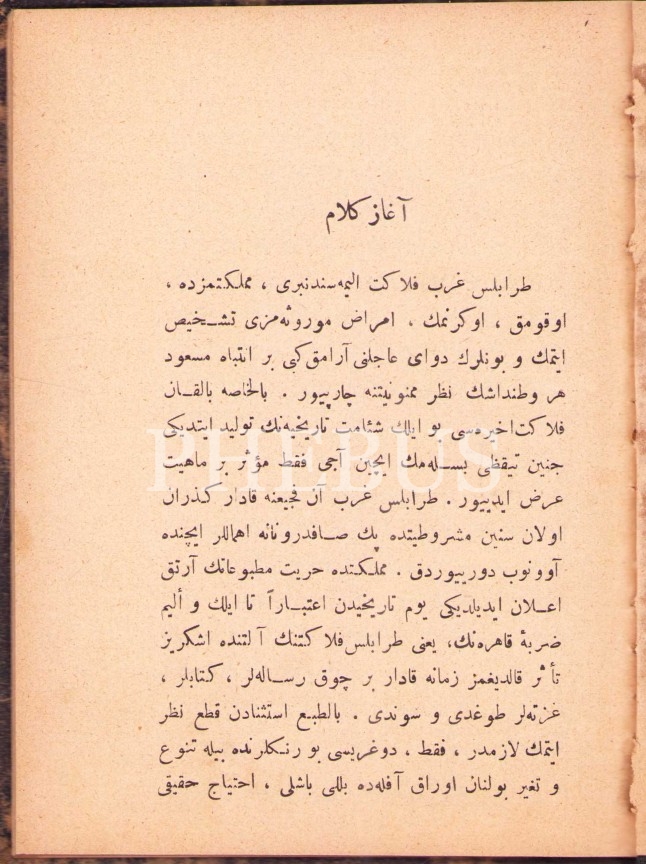 آغاز كلام
طرابلس غرب فلاكت اليمه‌سندنبرى ، مملكتمزده ،
اوقومق ، اوكرنمك ، امراض موروثه‌مزى تشخيص
ايتمك و بونلرك دواى عاجلنى آرامق كبى بر انتباه مسعود
هر وطنداشك نظر ممنونيتنه چارپيور . بالخاصه بالقان
فلاكت اخيره‌سى بو ايلك شئامت تاريخيه‌نك توليد ايتديكى
جنين تيقظى بسله‌مك ايچين آجى فقط مؤثر بر ماهيت
عرض ايدييور . طرابلس غرب آن فجيعنه قادار كذران
اولان سنين مشروطيتده پك صافدرونانه اهماللر ايچنده
آوونوب دورييوردق . مملكتده حريت مطبوعاتك آرتق
اعلان ايديلديكى يوم تاريخيدن اعتباراً تا ايلك و أليم
ضربۀ قاهره‌نك، يعنى طرابلس فلاكتنك آلتنده اشكريز
تأثر قالديغمز زمانه قادار بر چوق رساله‌لر ، كتابلر ،
غزته‌لر طوغدى و سوندى . بالطبع استثنادن قطع نظر
ايتمك لازمدر ، فقط ، دوغريسى بو رنكلرنده بيله تنوع
و تغير بولنان اوراق آفله‌ده بللى باشلى ، احتياج حقيقى
PHEBUS